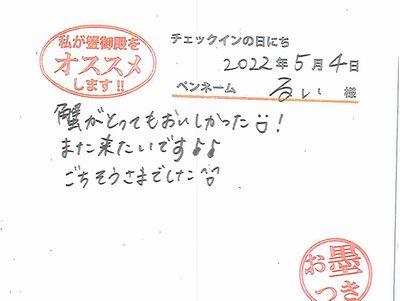 私が蟹御殿を
オススメ
します!!
チェックインの日にち
2022年5月4日
ペンネーム るい 様
蟹がとってもおいしかった!
また来たいです♪♪
ごちそうさまでした
お墨
つき